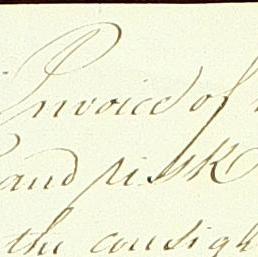 Invoice of
and risk
the consign